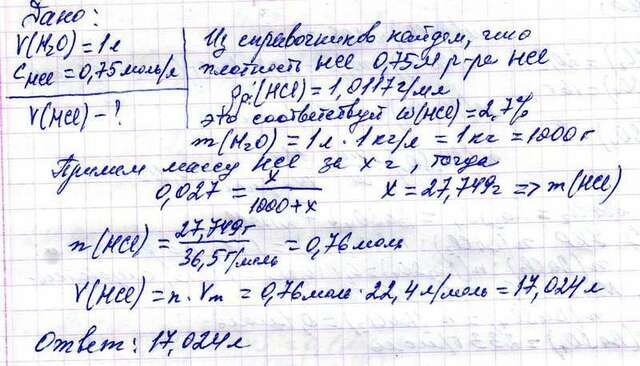 Дано:
V(H₂O) = 1л
C HCl = 0,75моль/л
V(HCl) - ?
Из справочников найдем, что
плотность HCl 0,75М р-ра HCl
ρр.(HCl) = 1,0117г/мл
это соответствует ω(HCl) = 2,7%
m(H₂O) = 1л · 1кг/л = 1кг = 1000г
Примем массу HCl за х г, тогда
0,027 = x/(1000+x) x = 27,749г => m(HCl)
n(HCl) = 27,749г/36,5г/моль = 0,76моль
V(HCl) = n · Vm = 0,76моль · 22,4л/моль = 17,024л
Ответ: 17,024л